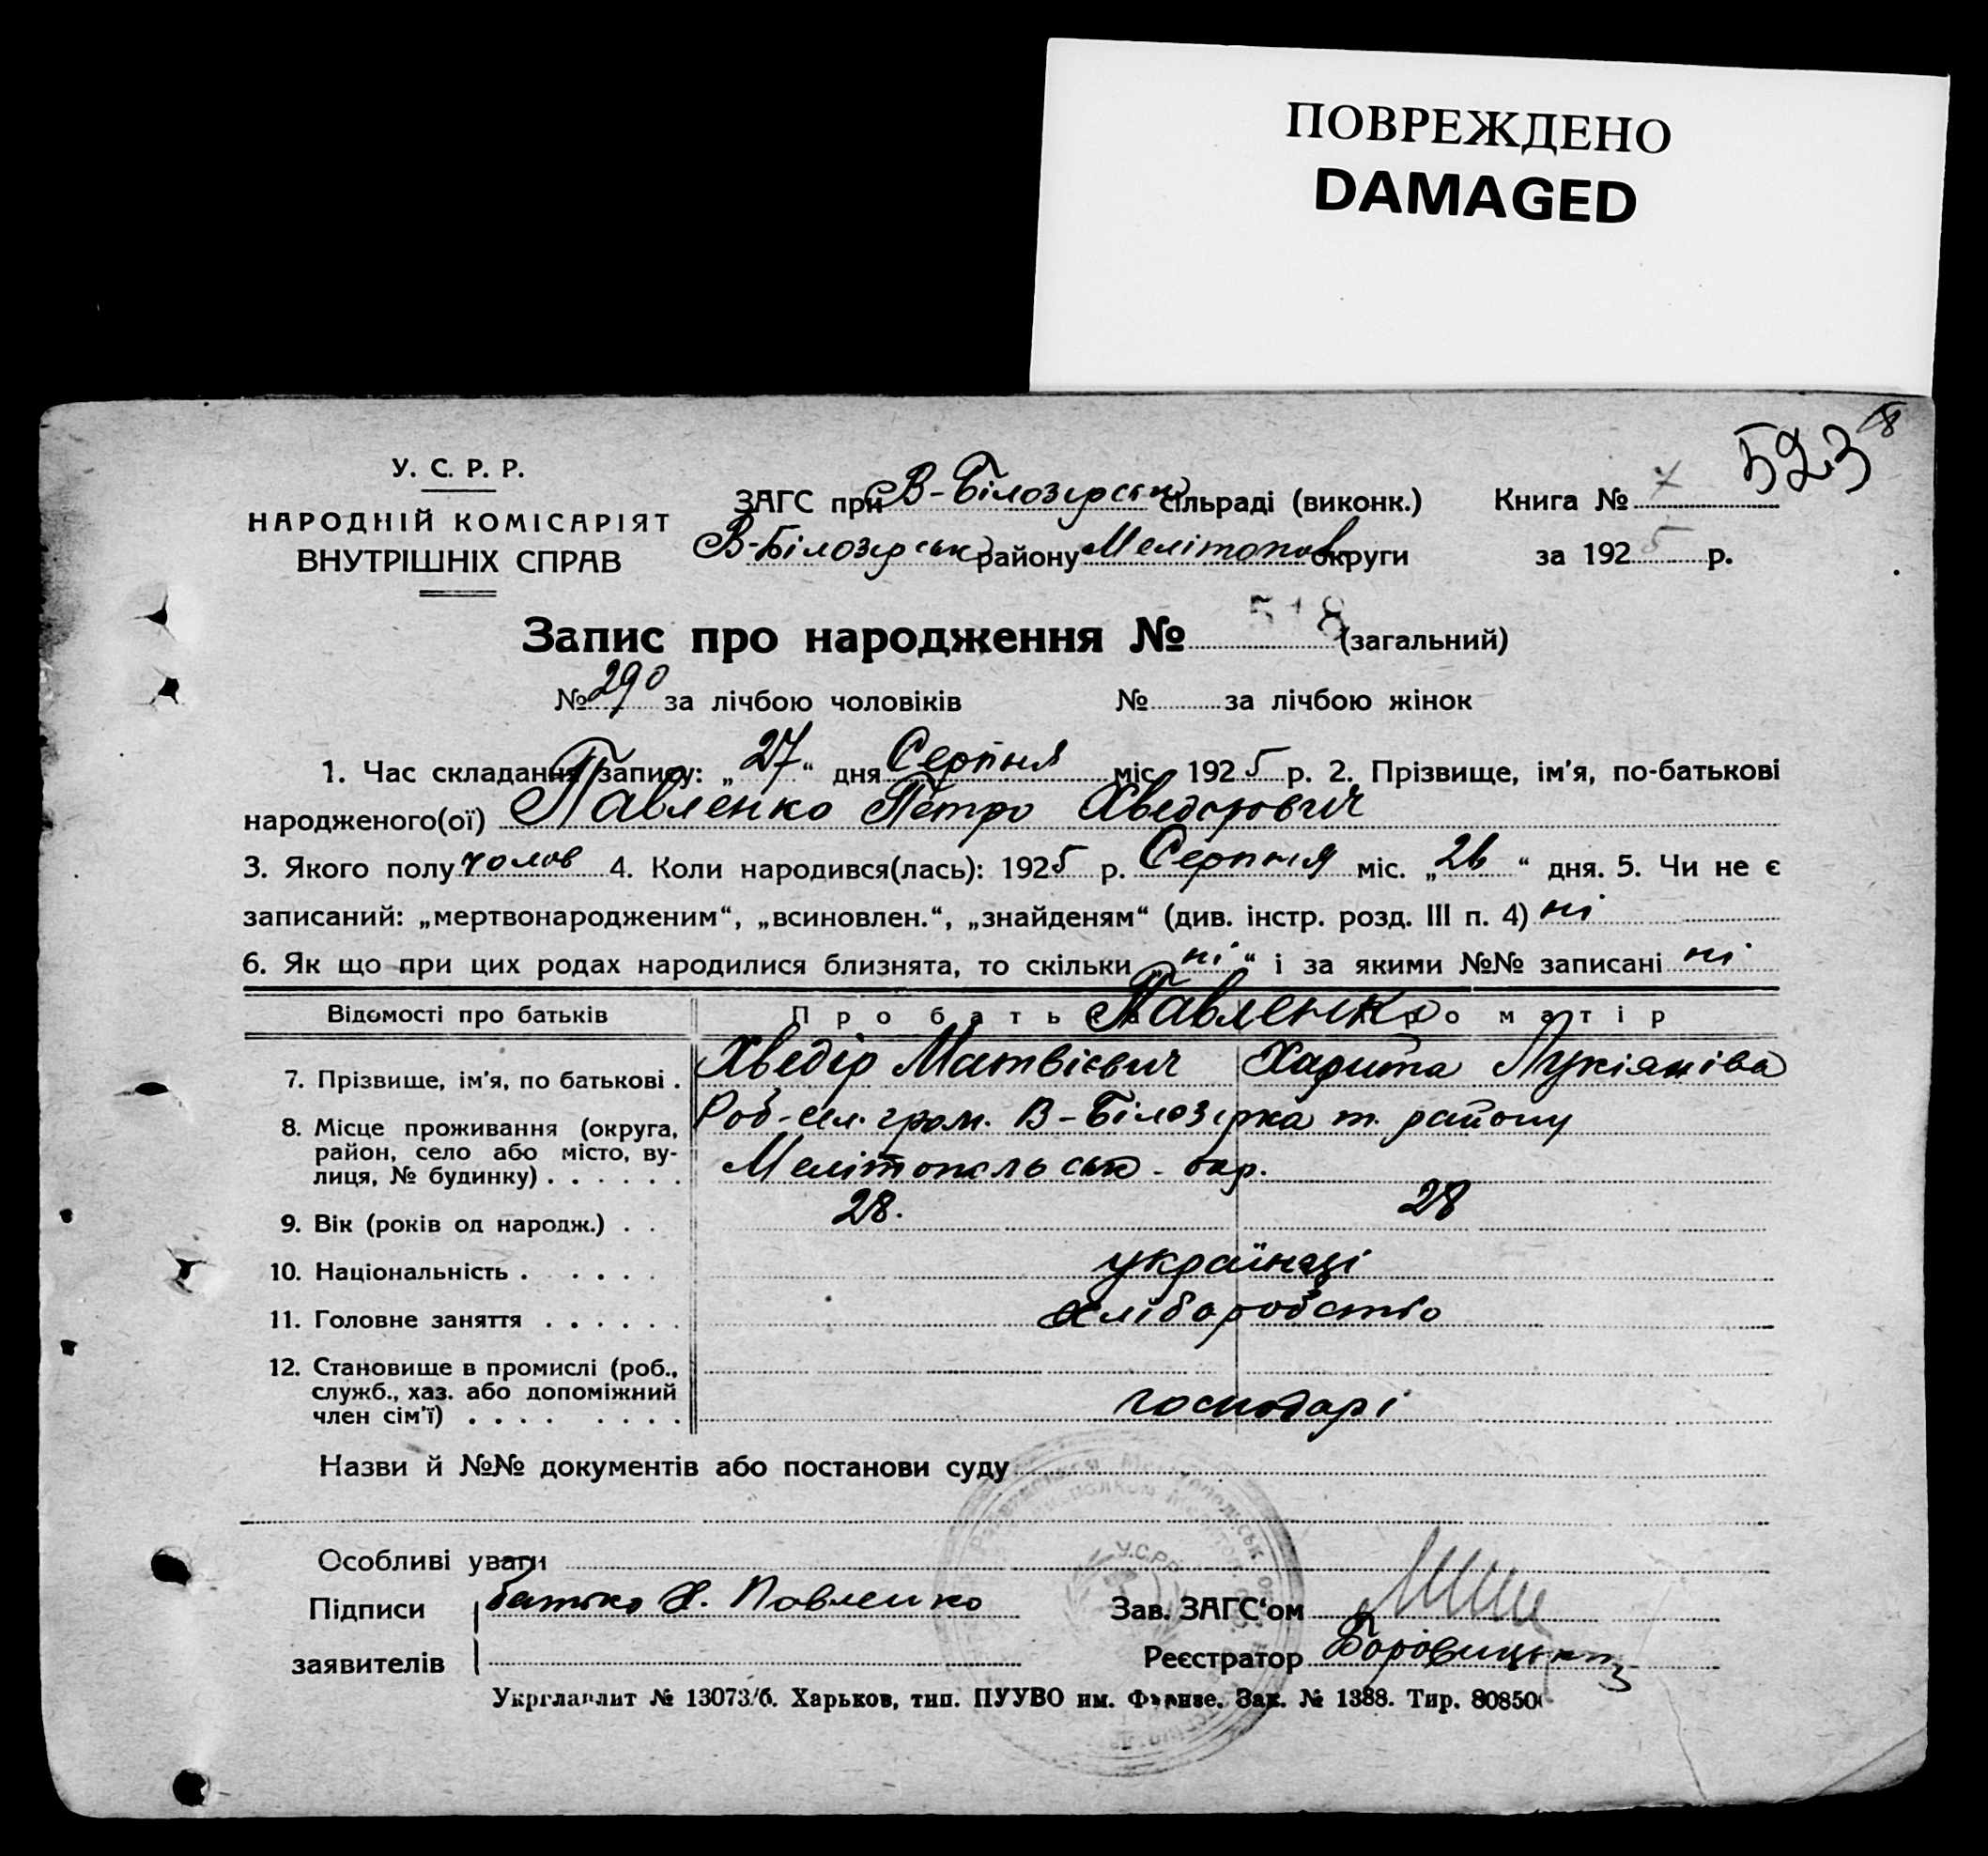 ПОВРЕЖДЕНО
DAMAGED
523
У. С. Р. Р.
НАРОДНІЙ КОМІСАРІЯТ
ВНУТРІШНІХ СПРАВ
ЗАГС при В-Білозирськ сільраді (виконк.)
В-Білозирськ району Мелітопов округи
Книга № 7
за 1925 р.
Запис про народження № 518 (загальний)
№ 290 за лічбою чоловіків № за лічбою жінок
1. Час складання запису: „27“ дня Серпня міс. 1925 р. 2. Прізвище, ім'я, по-батькові
народженого(ої) Павленко Петро Хведорович
3. Якого полу чолов 4. Коли народився(лась): 1925 р. Серпня міс. „26“ дня. 5. Чи не є
записаний: „мертвонародженим“, „всиновлен.“, „знайденям“ (див. інстр. розд. III п. 4) ні
6. Як що при цих родах народилися близнята, то скільки „ні“ і за якими №№ записані ні
Відомості про батьків Про батька Павленко Про матір
7. Прізвище, ім'я, по батькові . Хведір Матвієвич Харита Лукіянівa
8. Місце проживання (округа, район, село або місто, вулиця, № будинку) . . . . . . Роб-сел. гром. В-Білозірка т. району
Мелітопельськ-окр.
9. Вік (років од народж.) . . 28. 28
10. Національність . . . . . українці
11. Головне заняття . . . . . . хліборобство
12. Становище в промислі (роб.,
служб., хаз. або допоміжний
член сім'ї) . . . . . . . . господарі
Назви й №№ документів або постанови суду
Особливі уваги
Підписи батько Х. Павленко Зав. ЗАГС'ом
заявителів Реєстратор Боровицький
У.С.Р.Р.
Укрглавлит № 13073/б. Харьков, тип. ПУУВО им. Фрунзе. Зак. № 1388. Тир. 80850